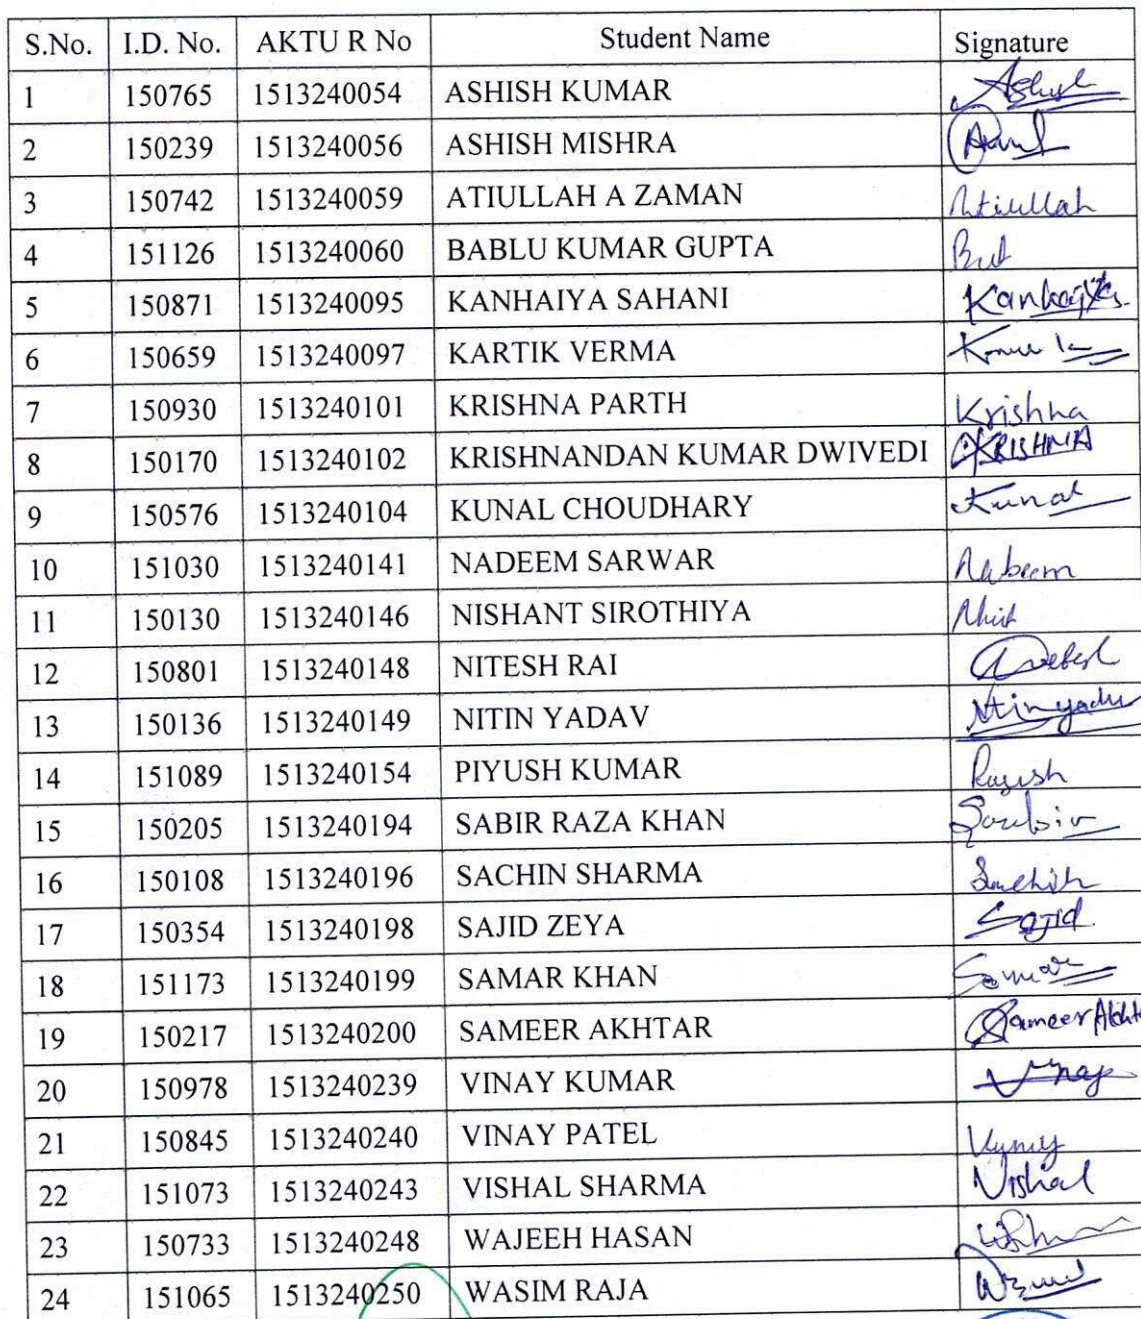 S.No. I.D. No. AKTU R No Student Name Signature
1 150765 1513240054 ASHISH KUMAR
2 150239 1513240056 ASHISH MISHRA
3 150742 1513240059 ATIULLAH A ZAMAN Atiullah
4 151126 1513240060 BABLU KUMAR GUPTA
5 150871 1513240095 KANHAIYA SAHANI
6 150659 1513240097 KARTIK VERMA
7 150930 1513240101 KRISHNA PARTH Krishna
8 150170 1513240102 KRISHNANDAN KUMAR DWIVEDI KRISHNA
9 150576 1513240104 KUNAL CHOUDHARY Kunal
10 151030 1513240141 NADEEM SARWAR
11 150130 1513240146 NISHANT SIROTHIYA
12 150801 1513240148 NITESH RAI
13 150136 1513240149 NITIN YADAV
14 151089 1513240154 PIYUSH KUMAR
15 150205 1513240194 SABIR RAZA KHAN
16 150108 1513240196 SACHIN SHARMA
17 150354 1513240198 SAJID ZEYA Sajid
18 151173 1513240199 SAMAR KHAN
19 150217 1513240200 SAMEER AKHTAR Sameer
20 150978 1513240239 VINAY KUMAR Vinay
21 150845 1513240240 VINAY PATEL
22 151073 1513240243 VISHAL SHARMA Vishal
23 150733 1513240248 WAJEEH HASAN
24 151065 1513240250 WASIM RAJA